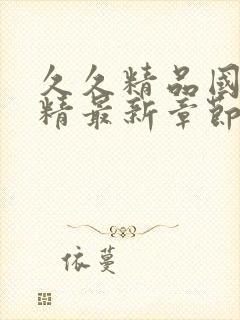 久久精品国
精最新章節
依蔓